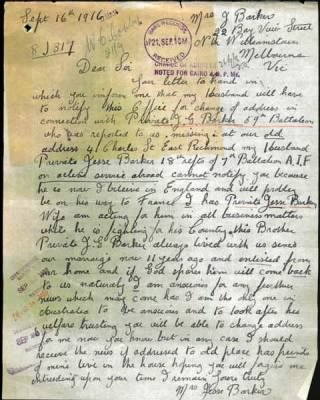 Sept 16th 1916
Mrs J Barker
Bay View Street
Nth Williamstown
Melbourne
Vic
BASE RECORDS
21 SEP. 1916
RECEIVED
CHANGE OF ADDRESS
NOTED FOR CAIRO & A.F. Mel.
Dear Sir
Your letter to hand in
which you inform me that my husband will have
to notify this Office for change of address in
connection with Private J. G. Barker 57th Battalion
who was reported to us, missing, at our old
address 41 Charles St East Richmond my husband
Private Jesse Barker 18th refts of 7th Battalion A.I.F
on active service abroad cannot notify you because
he is now I believe in England and will probly
be on his way to France I has Private Jesse Barker
Wife am acting for him in all business matters
while he is fighting for his Country, this Brother
Private J. G Barker always lived with us since
our marriage now 11 years ago and enlisted from
our home and if God spares him will come back
to us naturally I am anxious for any further
news which may come has I am the only one in
Australia to be anxious and to look after his
welfare trusting you will be able to change address
for me now you know but in any case I should
receive the news if addressed to old place has friends
of mine live in the house hoping you will forgive me
intruding upon your time I remain Yours truly
Mrs Jesse Barker